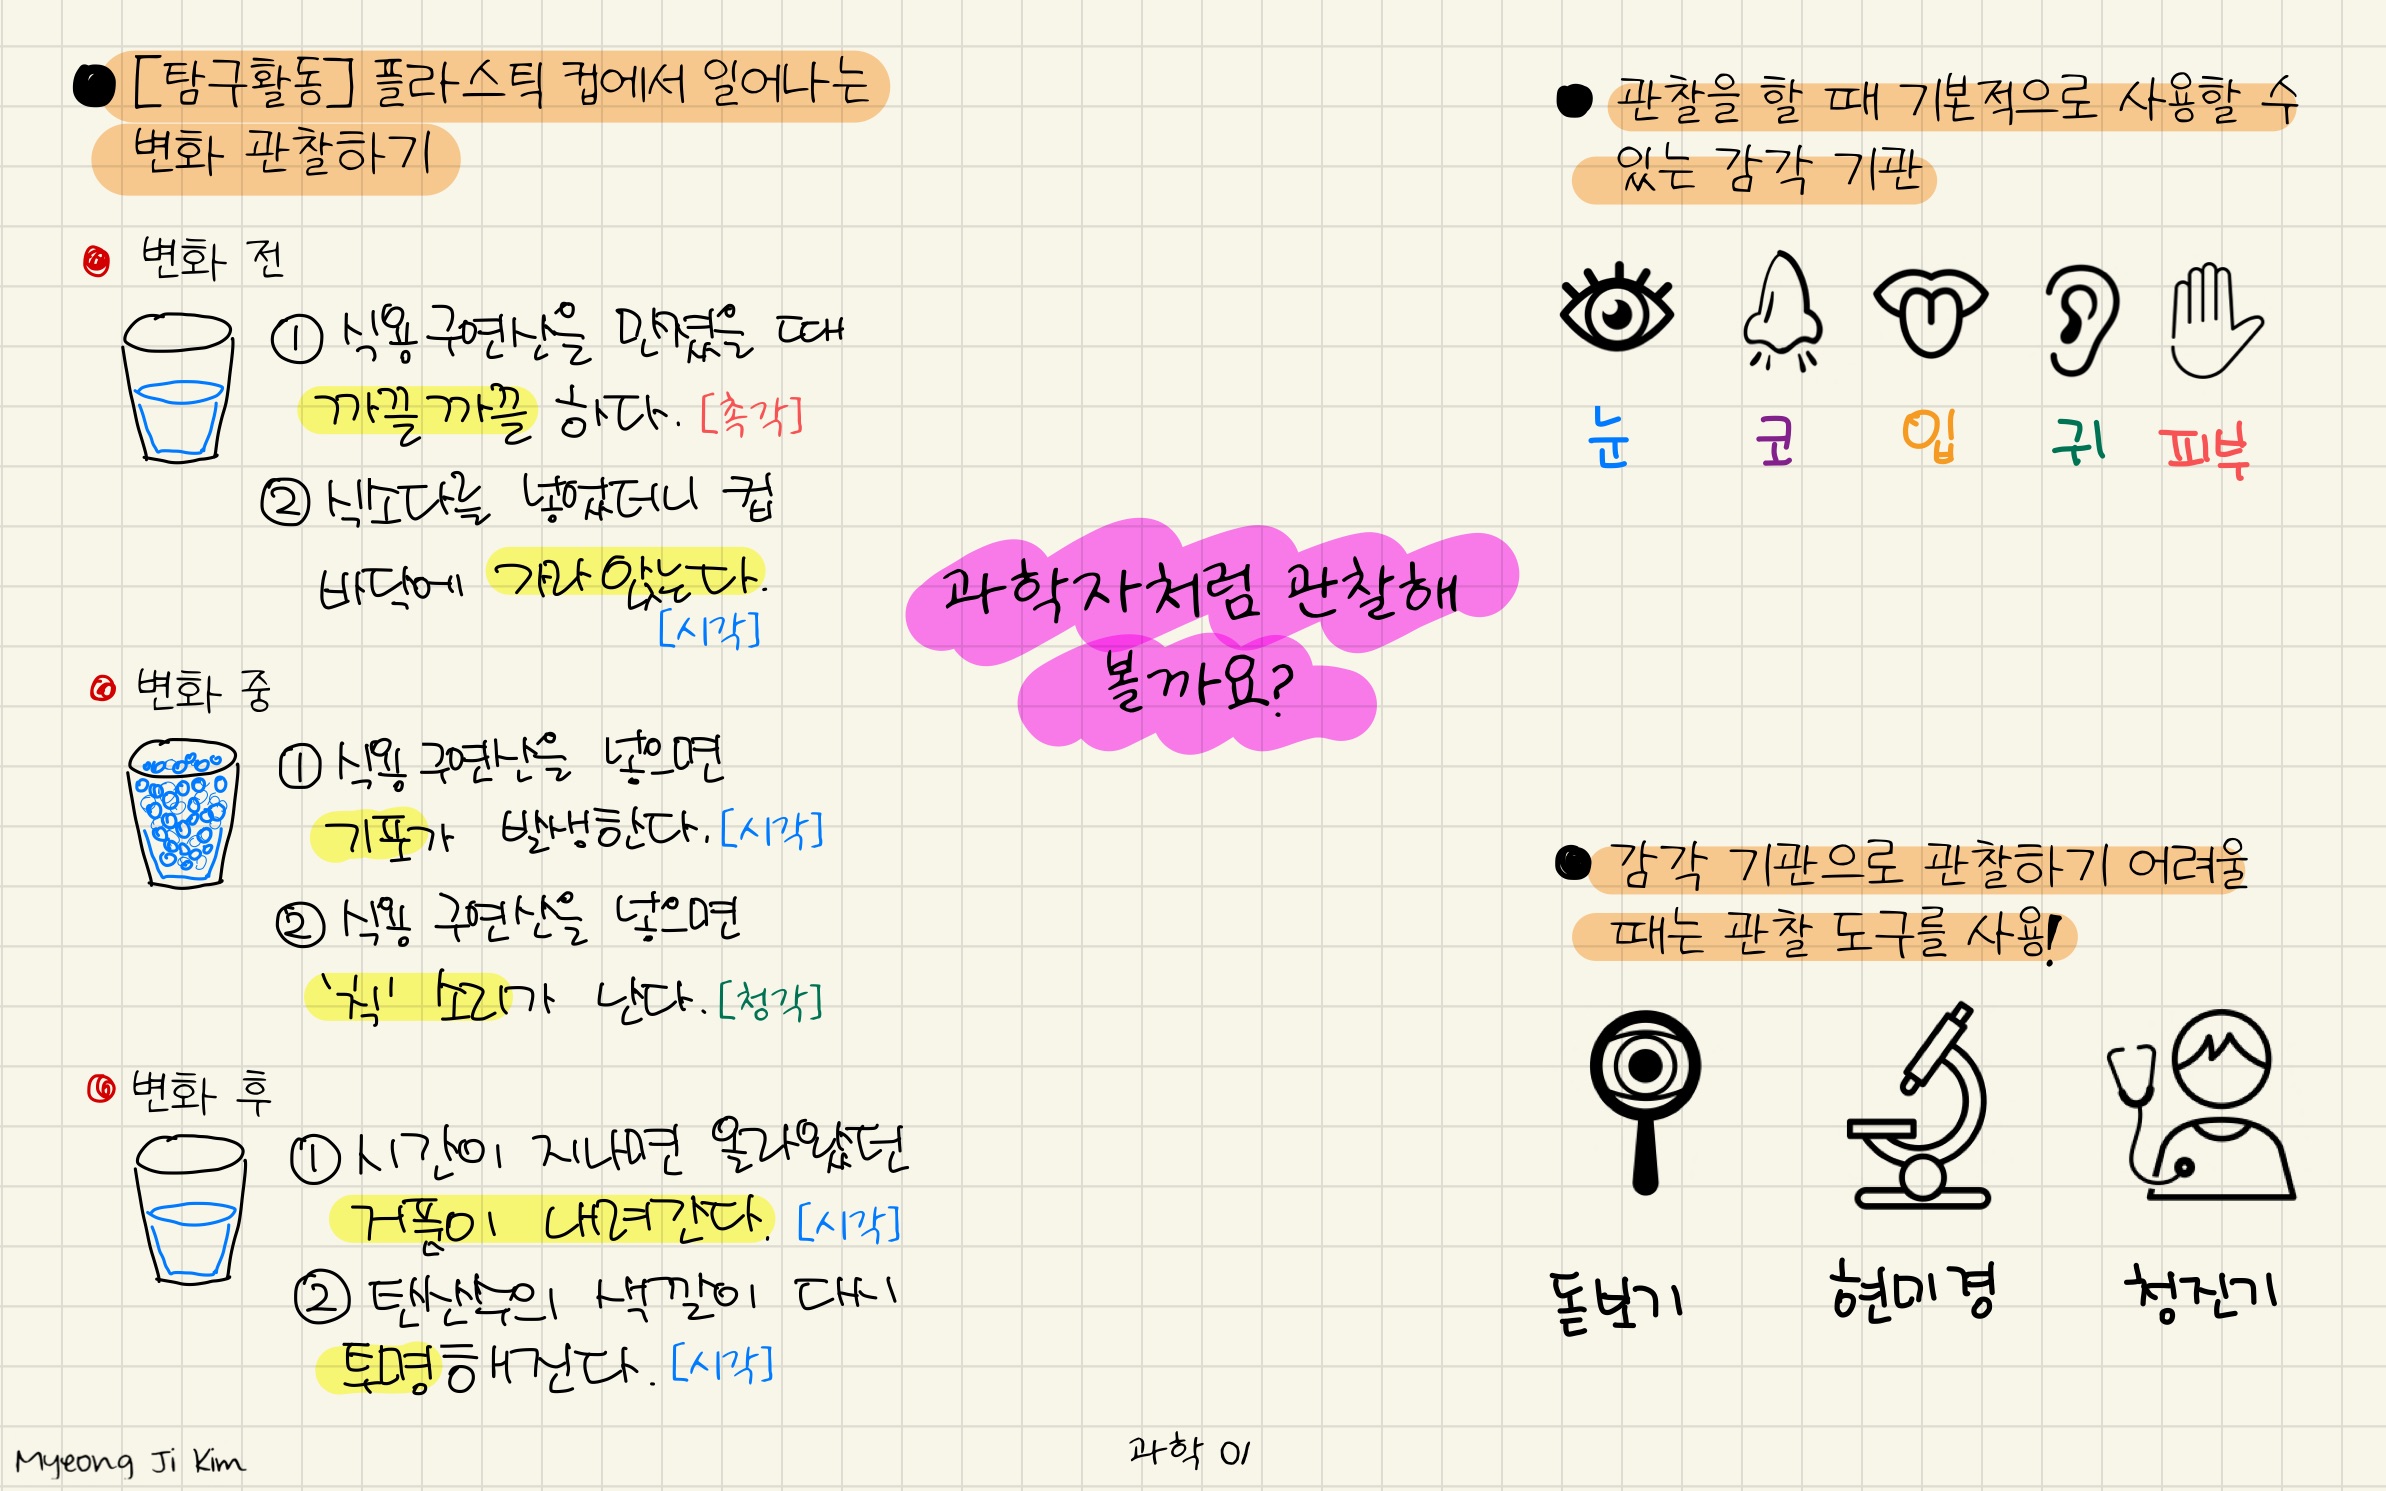 [탐구활동] 플라스틱 컵에서 일어나는
변화 관찰하기
변화 전
① 식용 구연산을 만졌을 때
까끌까끌 하다. [촉각]
② 식소다를 넣었더니 컵
바닥에 가라앉는다.
[시각]
변화 중
① 식용 구연산을 넣으면
기포가 발생한다. [시각]
② 식용 구연산을 넣으면
'칙' 소리가 난다. [청각]
변화 후
① 시간이 지나면 올라왔던
거품이 내려간다. [시각]
② 탄산수의 색깔이 다시
투명해진다. [시각]
과학자처럼 관찰해
볼까요?
관찰을 할 때 기본적으로 사용할 수
있는 감각 기관
눈 코 입 귀 피부
감각 기관으로 관찰하기 어려울
때는 관찰 도구를 사용!
돋보기 현미경 청진기
Myeong Ji Kim
과학 01